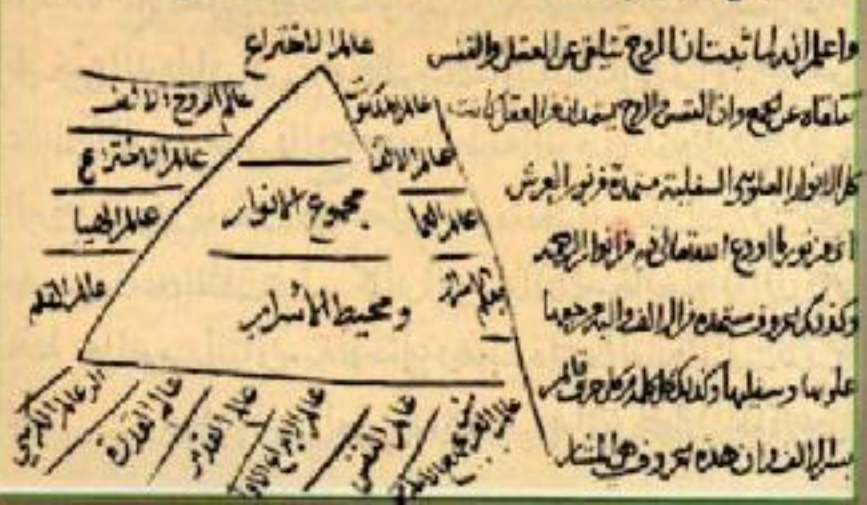 واعلم انه لما ثبت ان الروح تتلقى عن العقل والنفس
تتلقاه عن وان النفس والروح يستمدان من العقل كانت
كل الانوار العلوية السفلية مستمدة من نور العرش
الله تعالى فيه من انوار
وكذلك الحروف مستمدة من الالف واليه مرجعها
علويها وسفليها وكذلك كل كلمة وكل حرف قائم
بسر الالف وان هذه الحروف هي
عالم الاختراع
عالم الروح الالف
عالم الاختراع
عالم الهبا
عالم القلم
عالم الملكوت
عالم الالف
عالم العما
مجموع الانوار
ومحيط الأسرار
عالم الكرسي
عالم القدرة
عالم
عالم الابداع
عالم النفس
عالم